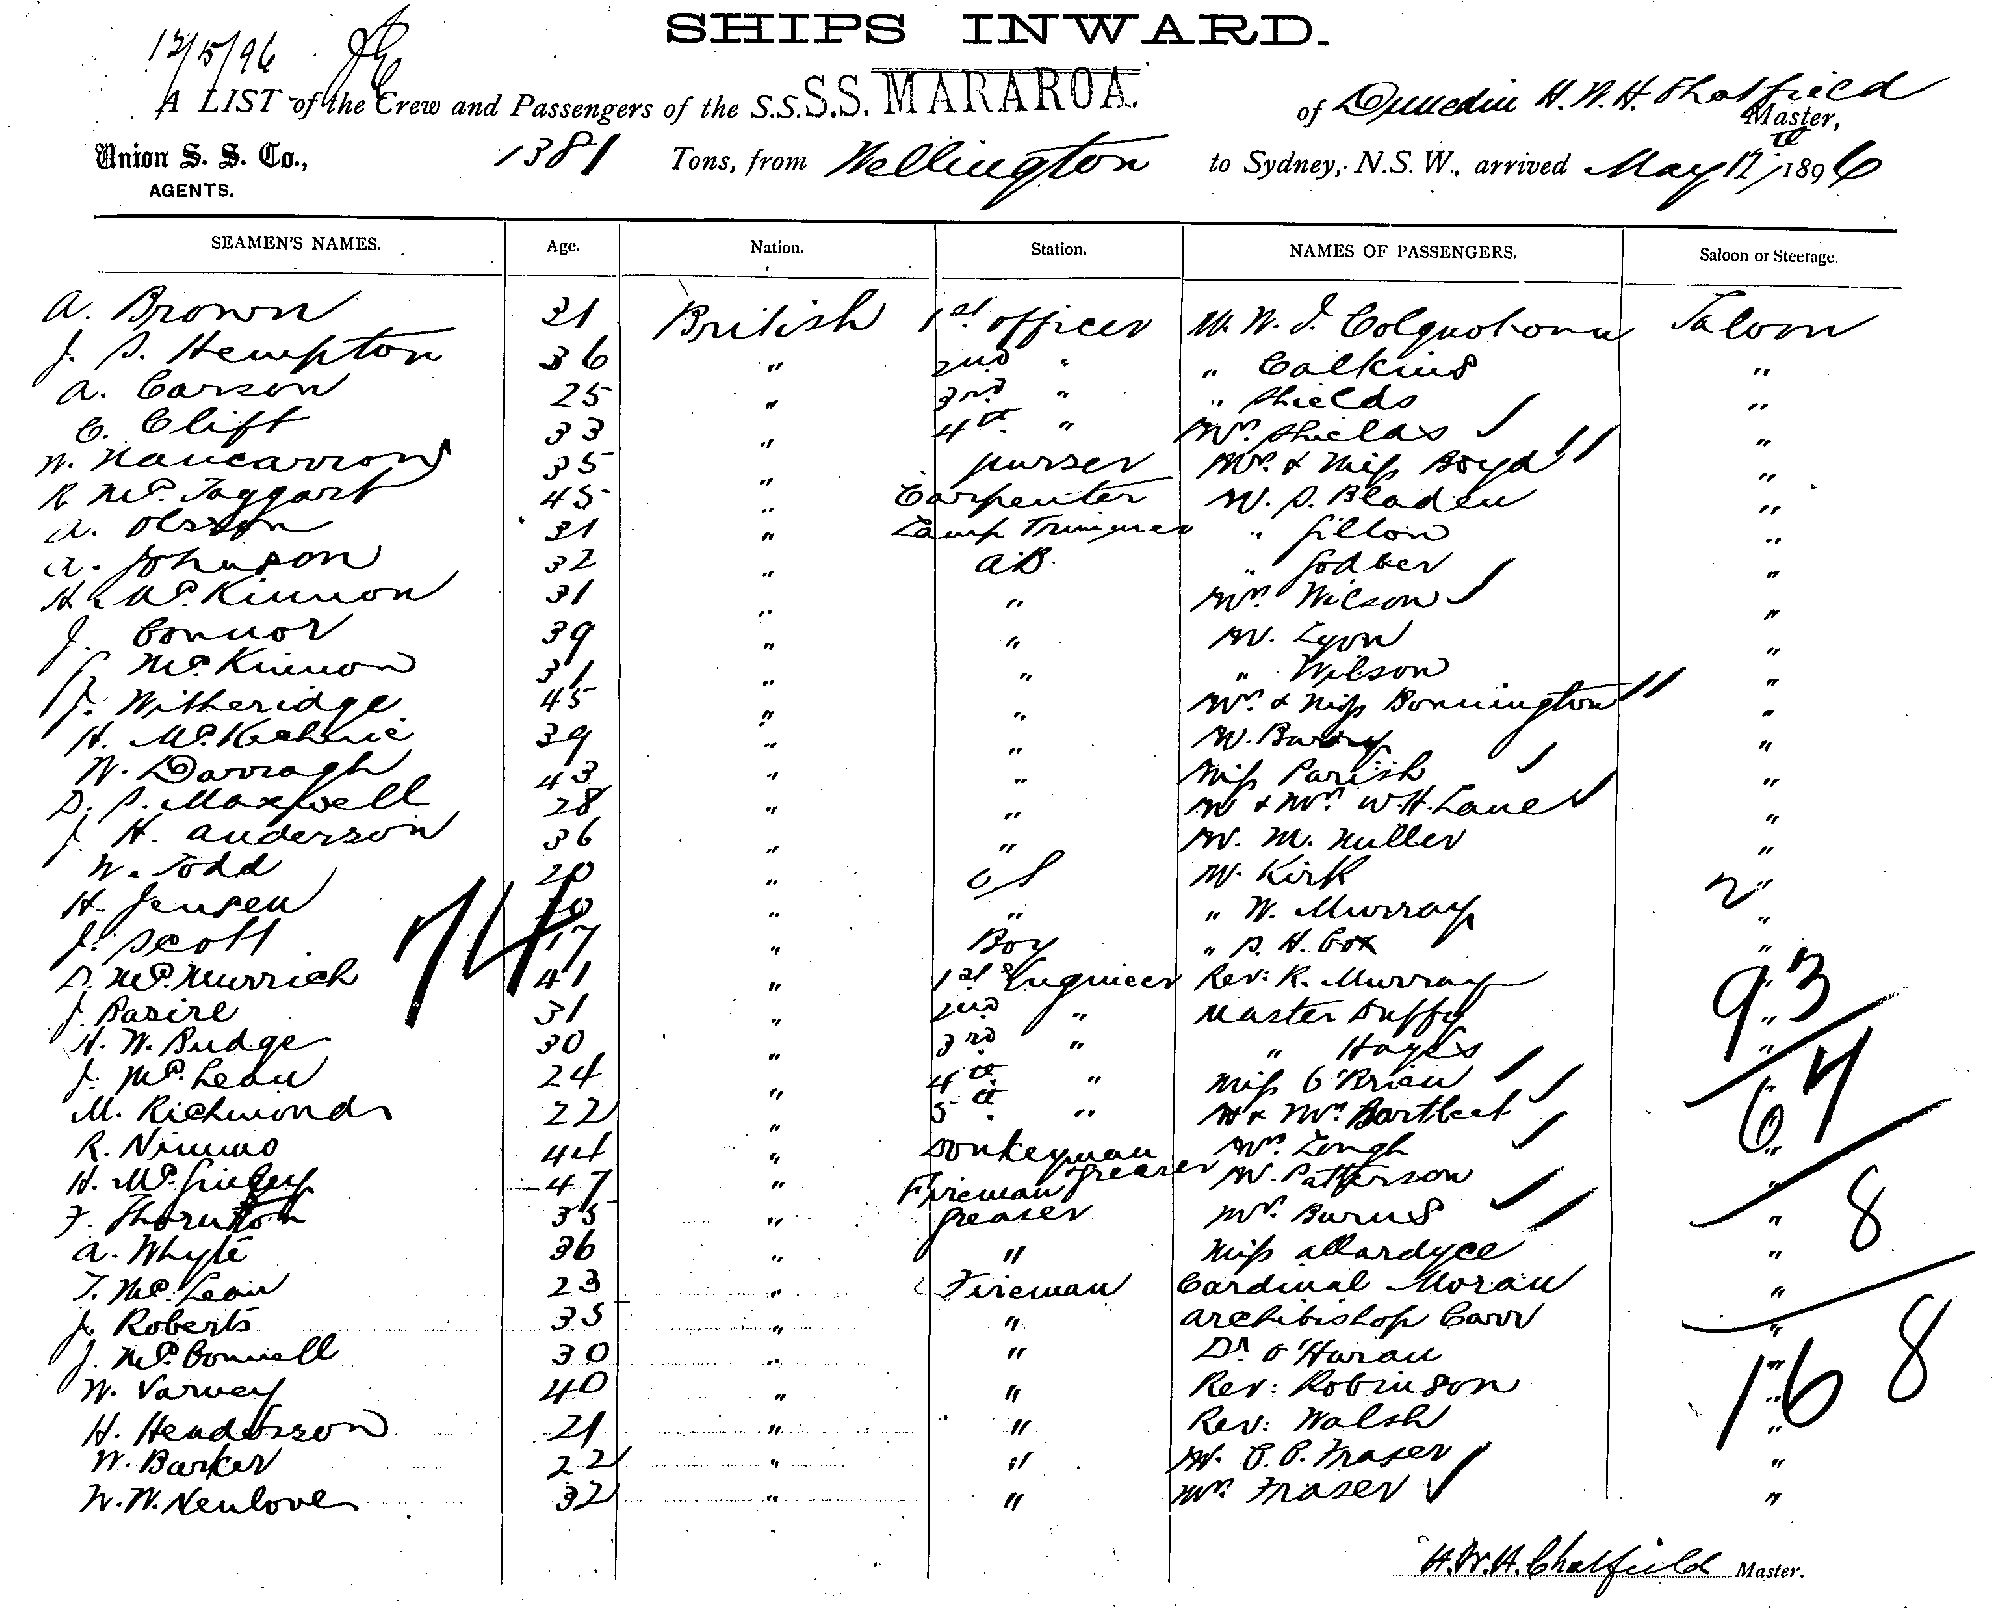 SHIPS INWARD.
12/5/96
A LIST of the Crew and Passengers of the S.S. S.S. MARAROA. of Dunedin H. W. H. Chatfield Master,
Union S. S. Co., AGENTS. 1381 Tons, from Wellington to Sydney, N.S.W., arrived May 12th 1896
SEAMEN'S NAMES. Age. Nation. Station. NAMES OF PASSENGERS. Saloon or Steerage.
A. Brown 31 British 1st officer W. J. Colquohoun Saloon
J. S. Hempton 36 " 2nd " " Calkins "
A. Carson 25 " 3rd " " Shields "
C. Clift 33 " 4th " Mrs. Shields "
W. Nancarrow 35 " purser Mrs. & Miss Boyd "
R McTaggart 45 " Carpenter Mr. S. Bladen "
A. Olsson 31 " Lamp Trimmer " Gillon "
A. Johnson 32 " AB. " Godber "
H. McKinnon 31 " " Mrs. Wilson "
J. Connor 39 " " Mr. Lyon "
McKinnon 31 " " " Wilson "
J. Witheridge 45 " " Mrs. & Miss Bonnington "
H. McKechnie 39 " " Mr. Barry "
W. Darragh 43 " " Miss Parish "
D. S. Maxwell 28 " " Mr & Mrs W. H. Lane "
J. H. Anderson 36 " " Mr. M. Miller "
W. Todd 20 " OS Mr. Kirk "
H. Jensen " " " W. Murray "
J. Scott 17 " Boy " S. H. Cox "
D. McMurrich 41 " 1st Engineer Rev: R. Murray
J. Basire 31 " 2nd " Master Duffy "
H. W. Budge 30 " 3rd " " Hayes "
J. McLean 24 " 4th " Miss O'Brien
M. Richmond 22 " 5th " Mr & Mrs Bartleet
R. Nimmo 44 " Donkeyman Greaser Mrs. Lough
H. McGinley 47 " Fireman Mr. Patterson "
F. Thornton 35 " Greaser Mrs. Burns "
A. Whyte 36 " " Miss Allardyce "
T. McLean 23 " Fireman Cardinal Moran "
J. Roberts 35 " " Archbishop Carr "
J. McConnell 30 " " Dr. O'Haran "
W. Varney 40 " " Rev: Robinson "
H. Henderson 21 " " Rev: Walsh "
W. Barker 22 " " Mr. Fraser "
W. W. Neulove 32 " " Mrs. Fraser "
74
93
67
8
168
H. W. H. Chatfield Master.